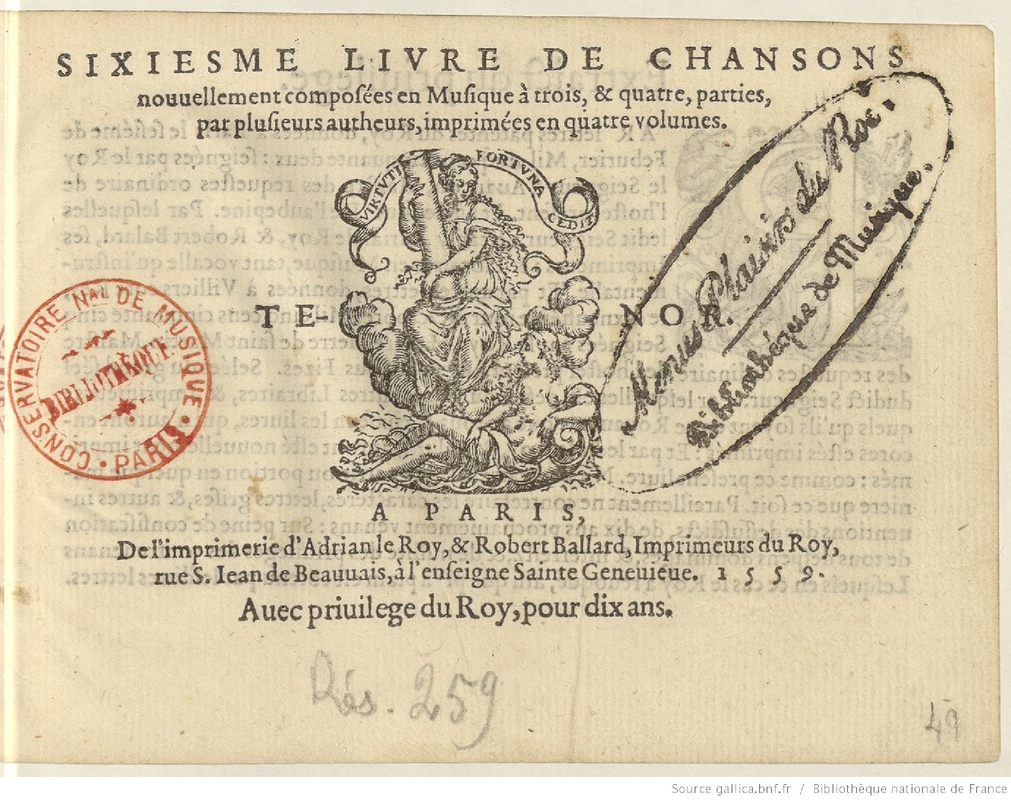 SIXIESME LIVRE DE CHANSONS
nouuellement composées en Musique à trois, & quatre, parties,
par plusieurs autheurs, imprimées en quatre volumes.
VIRTVTI FORTVNA CEDIT
TE- NOR.
Menus Plaisirs du Roi.
Bibliothéque de Musique.
CONSERVATOIRE NAL DE MUSIQUE
BIBLIOTHÈQUE
PARIS
A PARIS,
De l'imprimerie d'Adrian le Roy, & Robert Ballard, Imprimeurs du Roy,
rue S. Iean de Beauuais, à l'enseigne Sainte Geneuieue. 1559.
Auec priuilege du Roy, pour dix ans.
Rés. 259
49
Source gallica.bnf.fr / Bibliothèque nationale de France